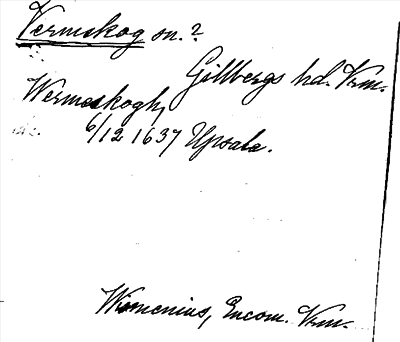 Vermskog sn.?
Gillbergs hd. Vrm.
Wermeskogh,
6/12 1637 Upsala.
Wimenius, Encom. Vrm.